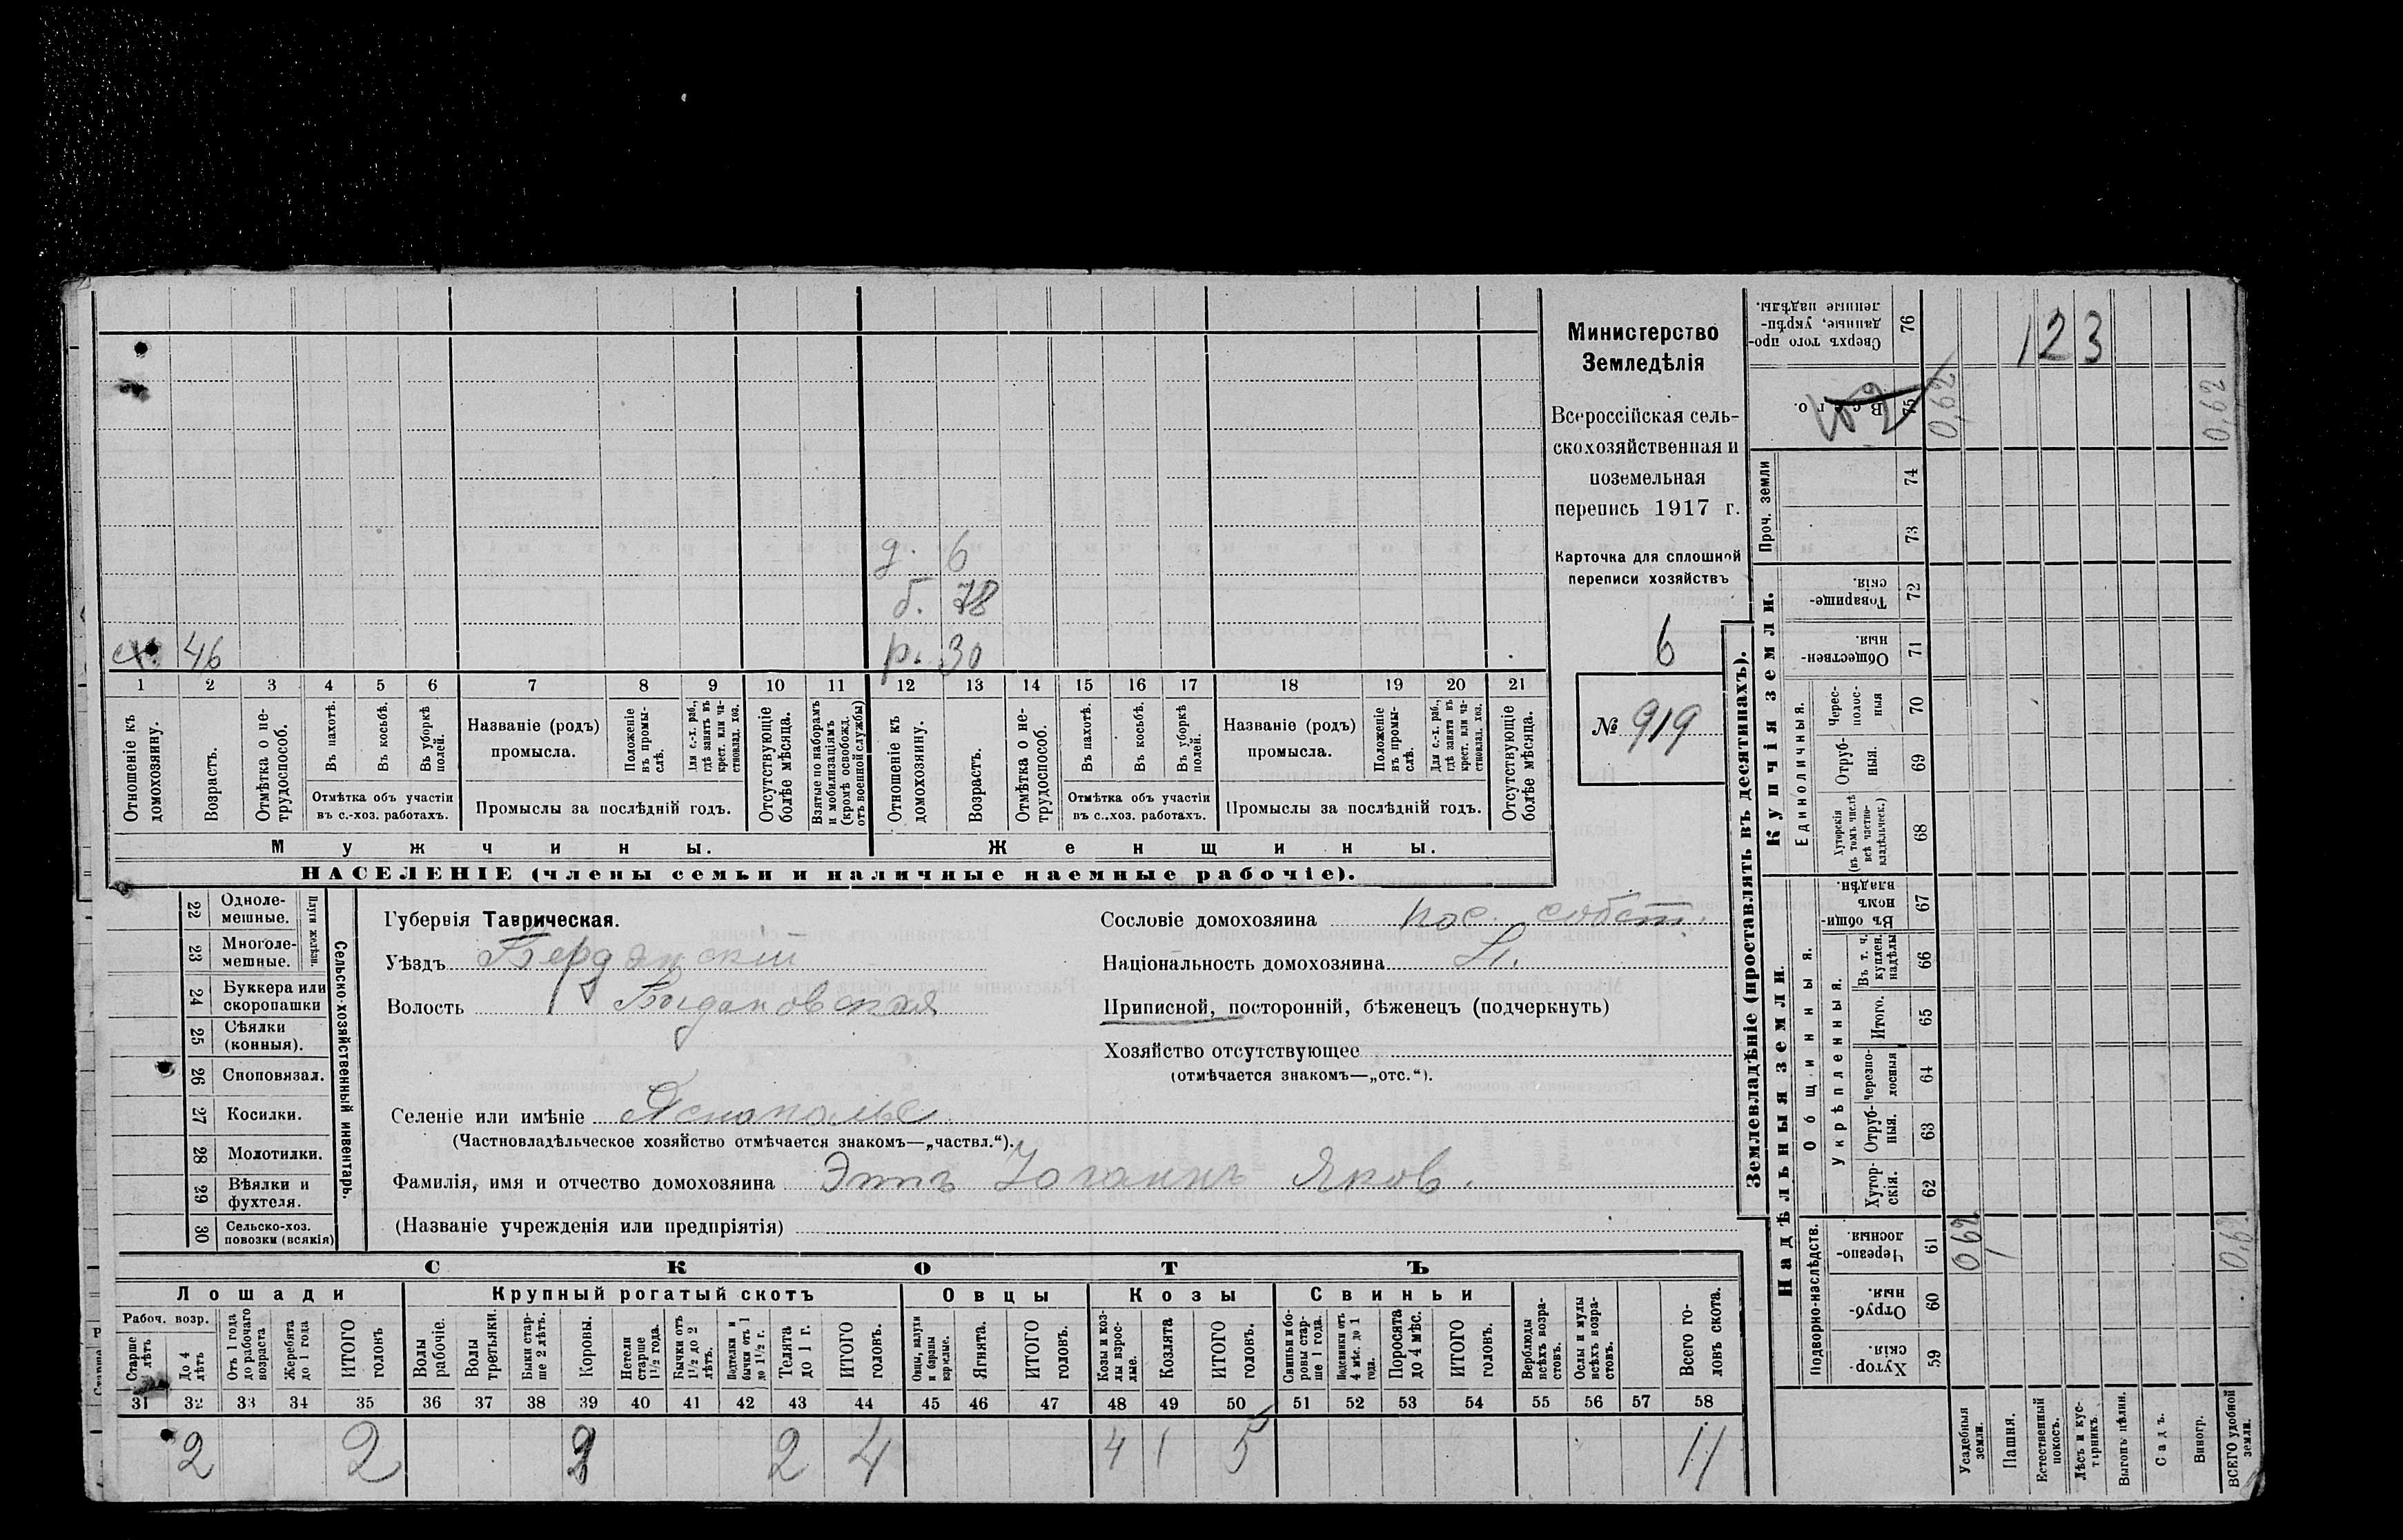 Министерство
Земледѣлія
Всероссійская сель-
скохозяйственная и
поземельная
перепись 1917 г.
Карточка для сплошной
переписи хозяйствъ
6
№ 919
д. 6
б. 78
46
р. 30
1 2 3 4 5 6 7 8 9 10 11 12 13 14 15 16 17 18 19 20 21
Отношеніе къ домохозяину.
Возрастъ.
Отмѣтка о не-трудоспособ.
Въ пахотѣ.
Въ косьбѣ.
Въ уборкѣ полей.
Отмѣтка объ участіи
въ с.-хоз. работахъ.
Названіе (родъ)
промысла.
Положеніе въ промы-слѣ.
Для с.-х. раб., гдѣ занятъ въ крест. или ча-стновлад. хоз.
Промыслы за послѣдній годъ.
Отсутствующіе болѣе мѣсяца.
Взятые по наборамъ и мобилизаціямъ (кромѣ освобожд. отъ военной службы)
Отношеніе къ домохозяину.
Возрастъ.
Отмѣтка о не-трудоспособ.
Въ пахотѣ.
Въ косьбѣ.
Въ уборкѣ полей.
Отмѣтка объ участіи
въ с..хоз. работахъ.
Названіе (родъ)
промысла.
Положеніе въ промы-слѣ.
Для с.-х. раб., гдѣ занята въ крест. или ча-стновлад. хоз.
Промыслы за послѣдній годъ.
Отсутствующіе болѣе мѣсяца.
Мужчины.
Женщины.
НАСЕЛЕНІЕ (члены семьи и наличные наемные рабочіе).
22 Одноле-мешные.
23 Многоле-мешные.
Плуги желѣзн.
24 Буккера или скоропашки
25 Сѣялки (конныя).
26 Сноповязал.
27 Косилки.
28 Молотилки.
29 Вѣялки и фухтеля.
30 Сельско-хоз. повозки (всякія)
Сельско-хозяйственный инвентарь.
Губернія Таврическая.
Уѣздъ Бердянскій
Волость Богдановская
Селеніе или имѣніе Яснополье
(Частновладѣльческое хозяйство отмѣчается знакомъ—„частвл.“).
Фамилія, имя и отчество домохозяина Эттъ Іоганнъ Яков.
(Названіе учрежденія или предпріятія)
Сословіе домохозяина пос. собств.
Національность домохозяина Н.
Приписной, посторонній, бѣженецъ (подчеркнуть)
Хозяйство отсутствующее
(отмѣчается знакомъ—„отс.“).
СКОТЪ
Лошади
Крупный рогатый скотъ
Овцы
Козы
Свиньи
Рабоч. возр.
Старше лѣтъ
До 4 лѣтъ
Отъ 1 года до рабочаго возраста
Жеребята до 1 года
ИТОГО головъ
Волы рабочіе.
Волы третьяки.
Быки стар-ше 2 лѣтъ.
Коровы.
Нетели старше 1½ года.
Бычки отъ 1½ до 2 лѣтъ.
Подтелки и бычки отъ 1 до 1½ г.
Телята до 1 г.
ИТОГО головъ.
Овцы, валухи и бараны взрослые.
Ягнята.
ИТОГО головъ.
Козы и коз-лы взрос-лые.
Козлята
ИТОГО головъ.
Свиньи и бо-ровы стар-ше 1 года.
Подсвинки отъ 4 мѣс. до 1 года.
Поросята до 4 мѣс.
ИТОГО головъ.
Верблюды всѣхъ возра-стовъ.
Ослы и мулы всѣхъ возра-стовъ.
Всего го-ловъ скота.
31 32 33 34 35 36 37 38 39 40 41 42 43 44 45 46 47 48 49 50 51 52 53 54 55 56 57 58
2 2 2 2 4 4 1 5 11
Землевладѣніе (проставлять въ десятинахъ).
Надѣльныя земли.
Купчія земли.
Подворно-наслѣдств.
Общинныя.
Укрѣпленныя.
Единоличныя.
Проч. земли
Сверхъ того про-данные, укрѣп-ленные надѣлы. 76
123
Всего. 75
0,62 0,62
74
73
Товарище-скія. 72
Обществен-ныя. 71
Черес-полос-ныя 70
Отруб-ныя. 69
Хуторскія (въ томъ числѣ всѣ частно-владѣльческ.) 68
Въ общи-номъ владѣн. 67
Въ т. ч. куплен. надѣлы 66
Итого. 65
Черезпо-лосныя 64
Отруб-ныя. 63
Хутор-скія. 62
Черезпо-лосныя. 61
062 1 0,62
Отруб-ныя. 60
Хутор-скія. 59
Усадебныя земли.
Пашня.
Естественный покосъ.
Лѣсъ и кус-тарникъ.
Выгонъ цѣлин.
Садъ.
Виногр.
ВСЕГО удобной земли.